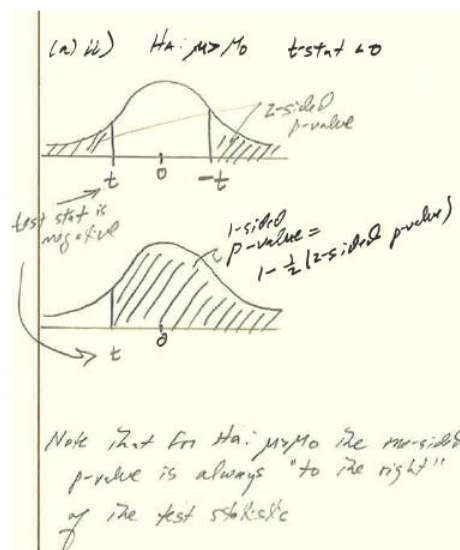 (a) ii) Ha: μ>μ0 t-stat <0
2-sided
p-value
t 0 -t
test stat is
negative
1-sided
p-value =
1 - ½ (2-sided p-value)
t 0
Note that for Ha: μ>μ0 the one-sided
p-value is always "to the right"
of the test statistic